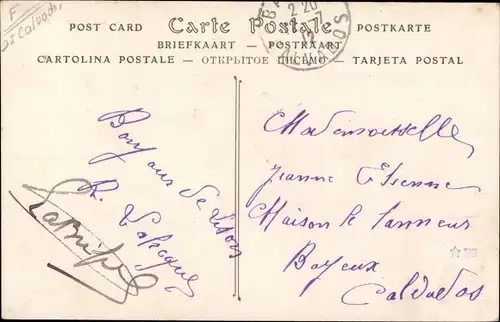 F
Calvados
POST CARD Carte Postale POSTKARTE
BRIEFKAART — POSTKAART
CARTOLINA POSTALE — ОТКРЫТОЕ ПИСЬМО — TARJETA POSTAL
CALVADOS
Bonjour de Lison
R.
Mademoiselle
Jeanne Etienne
Maison le Tanneur
Bayeux
Calvados